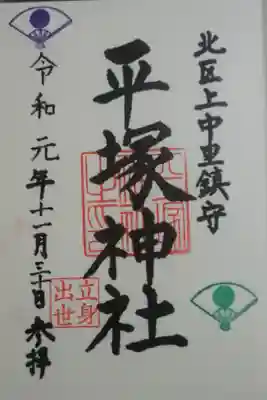 北区上中里鎮守
平塚神社
立身
出世
令和元年十一月三十日参拝